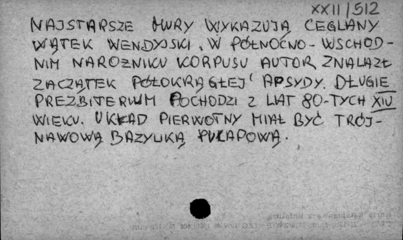 XXII/512
NAJSTARSZE MURY WYKAZUJĄ CEGLANY
WĄTEK WENDYJSKI. W PÓŁNOCNO-WSCHOD-
NIM NAROŻNIKU KORPUSU AUTOR ZNALAZŁ
ZACZĄTEK PÓŁOKRĄGŁEJ APSYDY. DŁUGIE
PREZBITERIUM POCHODZI Z LAT 80-TYCH XIV
WIEKU. UKŁAD PIERWOTNY MIAŁ BYĆ TRÓJ-
NAWOWĄ BAZYLIKĄ PULAPOWĄ.